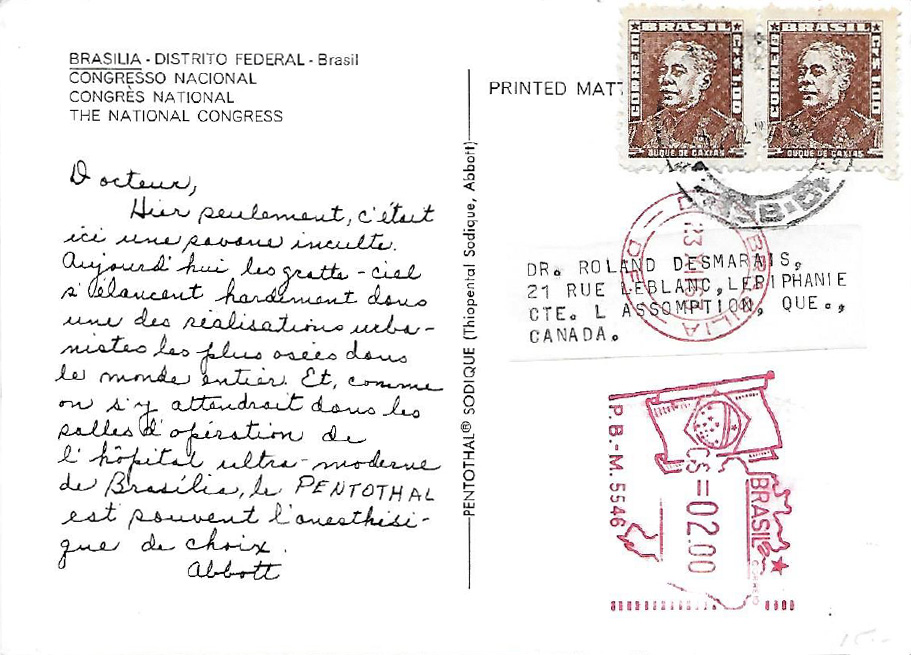 BRASILIA - DISTRITO FEDERAL - Brasil
CONGRESSO NACIONAL
CONGRÈS NATIONAL
THE NATIONAL CONGRESS
Docteur,
Hier seulement, c'était
ici une savane inculte.
Aujourd'hui les gratte-ciel
s'élancent hardiment dans
une des réalisations urba-
nistes les plus osées dans
le monde entier. Et, comme
on s'y attendrait dans les
salles d'opération de
l'hôpital ultra-moderne
de Brasília, le PENTOTHAL
est souvent l'anesthési-
que de choix.
Abbott
PENTOTHAL® SODIQUE (Thiopental Sodique, Abbott)
PRINTED MATT
BRASIL
CORREIO
CR$ 1,00
DUQUE DE CAXIAS
BRASIL
CORREIO
CR$ 1,00
DUQUE DE CAXIAS
DR. ROLAND DESMARAIS,
21 RUE LEBLANC, LEPIPHANIE
CTE. L ASSOMPTION, QUE.,
CANADA.
BRASILIA
P.B.-M. 5546
C$=02.00
BRASIL
15.-